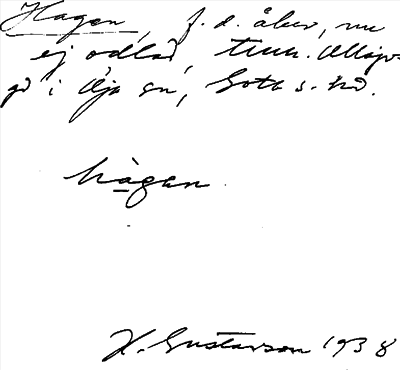 Hagen, f. d. åker, nu
ej odlad, tillh.
gd i Öja sn, Gotl. s. hd.
hagen
H. Gustavson 1938